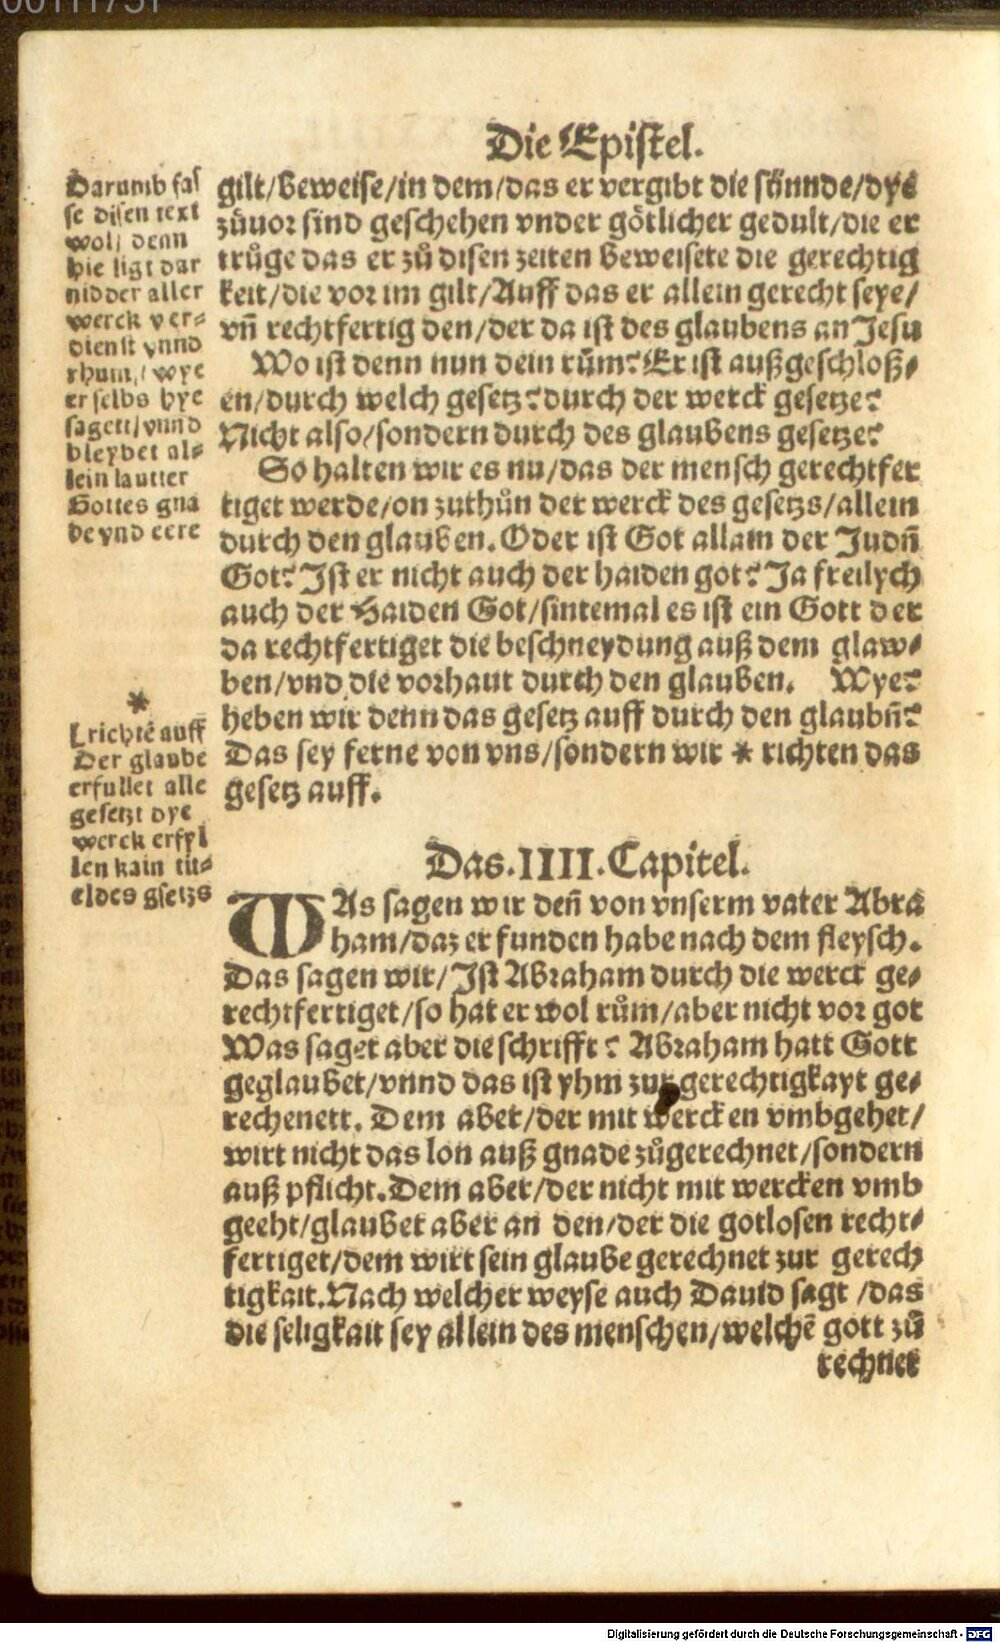 Die Epistel.
gilt/beweise/in dem/das er vergibt die sünnde/dye
zůuor sind geschehen vnder götlicher gedult/die er
trůge das er zů disen zeiten beweisete die gerechtig
keit/die vor im gilt/Auff das er allein gerecht seye/
vñ rechtfertig den/der da ist des glaubens an Jesu
Wo ist denn nun dein rům? Er ist außgeschloß⸗
en/durch welch gesetz? durch der werck gesetze?
Nicht also/sondern durch des glaubens gesetze?
So halten wir es nu/das der mensch gerechtfer
tiget werde/on zuthůn der werck des gesetzs/allein
durch den glauben. Oder ist Got allain der Judñ
Got? Ist er nicht auch der haiden got? Ja freilych
auch der Haiden Got/sintemal es ist ein Gott der
da rechtfertiget die beschneydung auß dem glaw⸗
ben/vnd die vorhaut durch den glauben. Wye?
heben wir denn das gesetz auff durch den glaubñ?
Das sey ferne von vns/sondern wir * richten das
gesetz auff.
Darumb fas
se disen text
wol/ denn
hie ligt dar
nidder aller
werck ver⸗
dienst vnnd
rhum/ wye
er selbs hye
sagett/vnnd
bleybet al⸗
lein lautter
Gottes gna
de vnd eere
*
Der glaube
erfullet alle
gesetzt dye
werck erfyl
len kain tit⸗
el des gsetzs
Das.IIII.Capitel.
WAs sagen wir deñ von vnserm vater Abra
ham/daz er funden habe nach dem fleysch.
Das sagen wir/Ist Abraham durch die werck ge⸗
rechtfertiget/so hat er wol rům/aber nicht vor got
Was saget aber die schrifft? Abraham hatt Gott
geglaubet/vnnd das ist yhm zur gerechtigkayt ge⸗
rechenett. Dem aber/der mit wercken vmbgehet/
wirt nicht das lon auß gnade zůgerechnet/sondern
auß pflicht. Dem aber/der nicht mit wercken vmb
geeht/glaubet aber an den/der die gotlosen recht⸗
fertiget/dem wirt sein glaube gerechnet zur gerech
tigkait. Nach welcher weyse auch Dauid sagt/das
die seligkait sey allein des menschen/welchẽ gott zů
rechnet
Digitalisierung gefördert durch die Deutsche Forschungsgemeinschaft - DFG